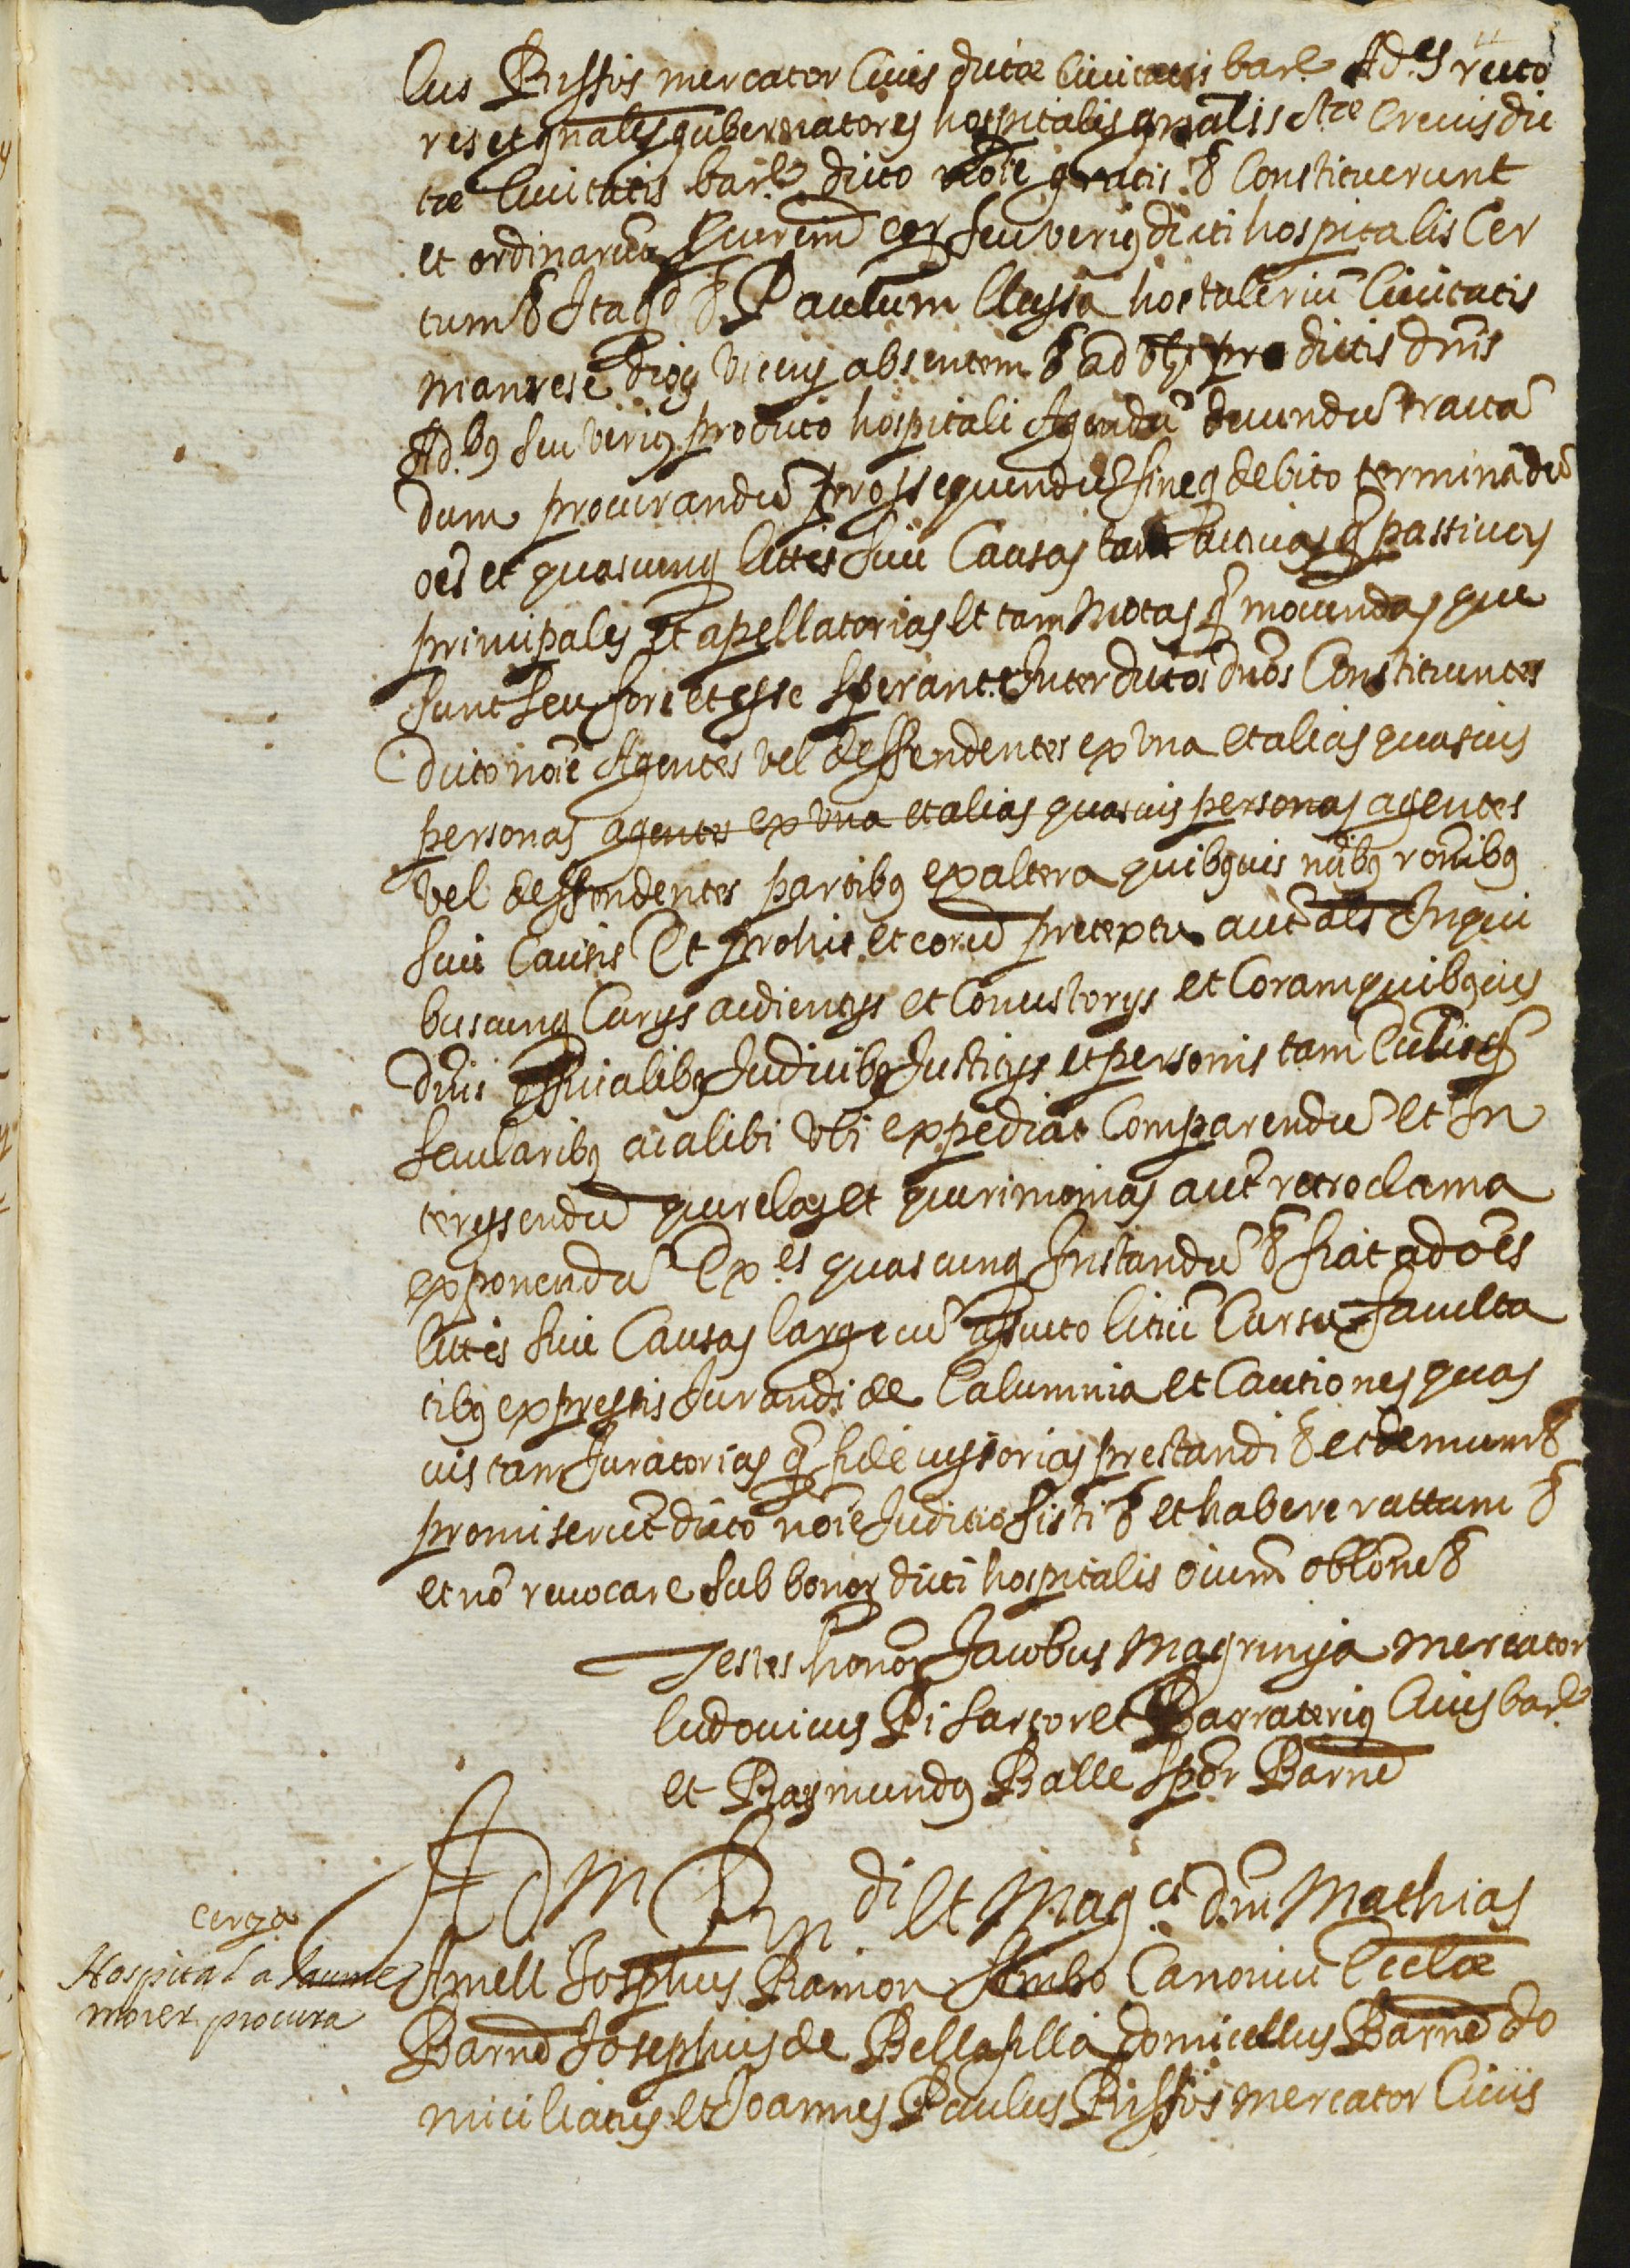 lus Rissos mercator Civis dictæ Civitatis barc.e Ad.es recto
res et gnāles gubernatores hospitalis gnālis stæ Crucis dic
tæ Civitatis barc.e dicto noīe gratis &a Constituerunt
et ordinarūt eorū seu verius dicti hospitalis Cer
tum &a Ita qd &a Paulum Llussa hostaleriū Civitatis
manrese absentem &a ad pro dictis dnīs
Ad.bus seu verius pro dicto hospitali Agendū ducendū tracta
dum procurandū prossequendū fineq debito terminādū
oēs et quascunq littes sive Causas tam activas q̄ passivas
principales et apellatorias et tam motas q̄ movendas que
sunt seu fore et esse sperant. Inter dictos dnōs Constituentes
dicto noīe Agentes vel deffendentes ex una et alias quasvis
personas agentes ex una et alias quasvis personas agentes
vel deffendentes partibus ex altera quibusvis nībus ronībus
sive causis Et pro his et eorū pretextu aut als In qui
buscunq Curiis audientiis et Consistoriis et Coram quibusvis
dnīs officialibus Judicibus Justiciis et personis tam Ecclīcis q̄
secularibus ac alibi ubi expediat Comparendū et In
teressendū querelas et querimonias aut retroclama
exponendū Ex.es quascunq Instandū &a fiat ad oēs
littes sive Causas large cū assueto litiū Cursu faculta
tibus expressis Jurandi de Calumnia et Cautiones quas
vis tam Juratorias q̄ fideiussorias prestandi &a et demum &a
promiserūt dicto noīe Juditio sisti &a et habere rattum &a
et nō revocare sub bonor dicti hospitalis oīum oblōne &a
Testes honor Jacobus Magrinya mercator
ludovicus Pi sartor et Barraterius Civis barc.e
et Raymundus Balle Spōr Barnē
Adm Rndi et Mag.ci dnī Mathias
Amell Josephus Ramon Canonici Eccleæ
Barnē Josephus de Bellafilla domicellus Barnē do
miciliatus et Joannes Paulus Rissos mercator Civis
Hospital a Jaume
procura